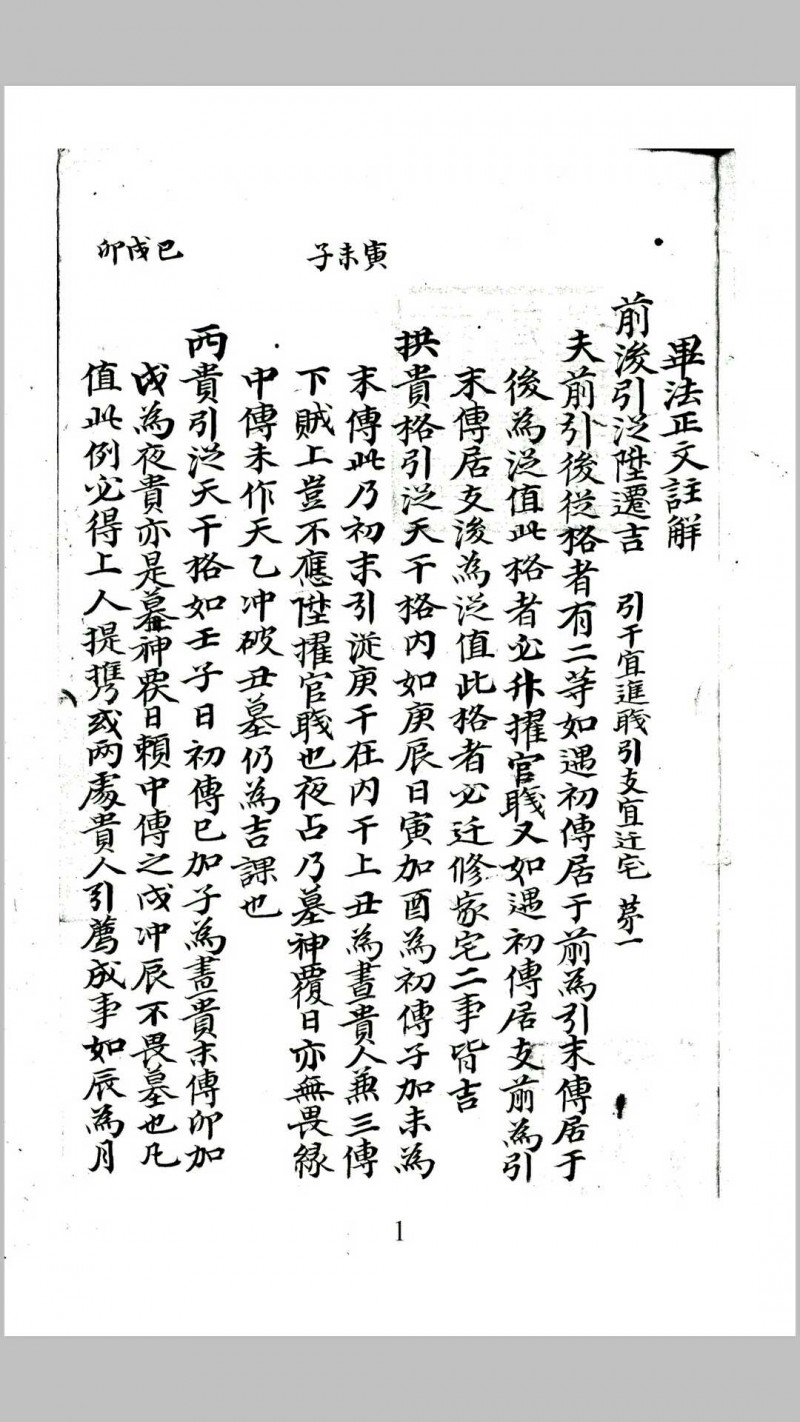 寅未子
巳戌卯
畢法正文註解
前後引從陞遷吉 引干宜進職引支宜迁宅 苐一
夫前引後從格者有二等如遇初傳居于前為引末傳居于
後為從值此格者必升擢官職又如遇初傳居支前為引
末傳居支後為從值此格者必迁修家宅二事皆吉
拱貴格引從天干格内如庚辰日寅加酉為初傳子加未為
末傳此乃初末引從庚干在内干上丑為晝貴人兼三傳
下賊上豈不應陞擢官職也夜占乃墓神覆日亦無畏緣
中傳未作天乙冲破丑墓仍為吉課也
两貴引從天干格如壬子日初傳巳加子為晝貴末傳卯加
戌為夜貴亦是墓神覆日頼中傳之戌冲辰不畏墓也凡
值此例必得上人提携或两處貴人引薦成事如辰為月
1